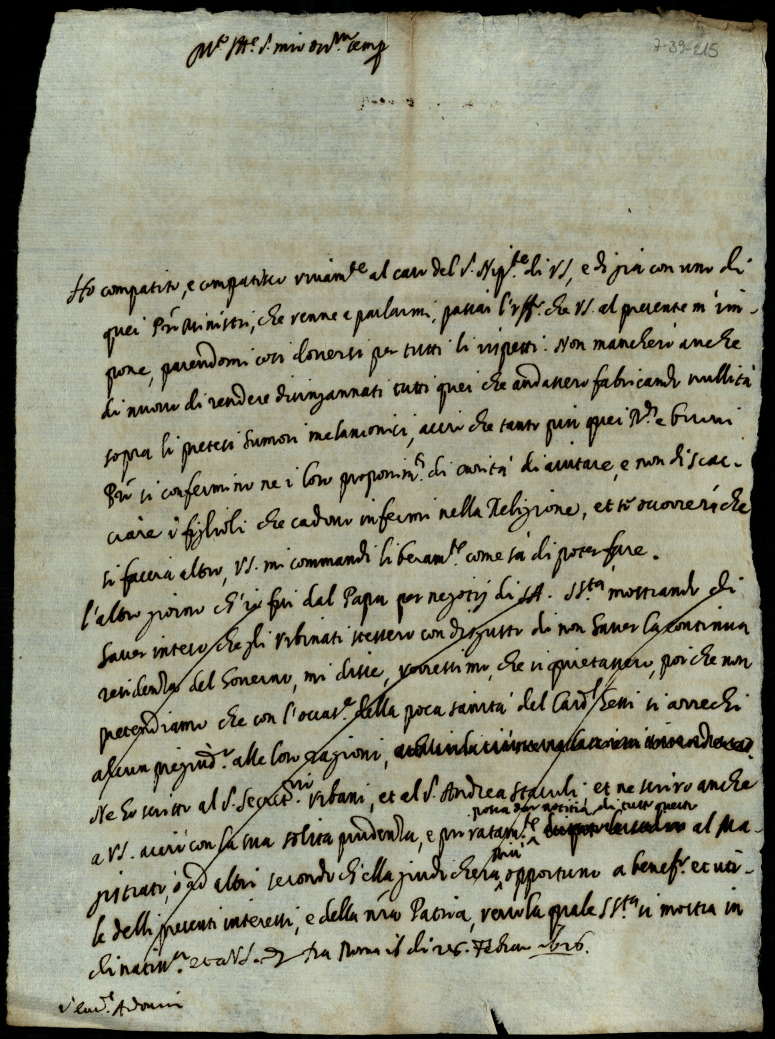 7-39-215
M.to Ill.re S.r mio oss.mo
Ho compatito, e compatisco vivam.te al caso del S. Nip.te di VS, e di già con uno di
quei P̃ri Ministri, che venne a parlarmi, passai l'uff.o che VS. al presente m'im-
pone, parendomi così doversi per tutti li rispetti. Non mancherò anche
di nuovo di rendere disingannati tutti quei che andassero fabricando nullità
sopra li pretesi humori melanconici, acciò che tanto più quei R.di e buoni
P̃ri si confermino ne i loro proponim.ti di carità di aiutare, e non discac-
ciare i figlioli che cadono infermi nella Religione, et se occorrerà che
si faccia altro, VS. mi commandi liberam.te come sà di poter fare.
l'altro giorno ch'io fui dal Papa per negotij di SA. SS.tà mostrando di
haver inteso che gli Urbinati stessero con disgusto di non haver la continua
residenza del Governo, mi disse, vorressimo, che si quietassero, poi che non
pretendiamo che con l'occas.e della poca sanità del Card.l Gessi si arrechi
alcun pregiud.o alle loro ragioni,
Ne ho scritto al S. Secret.rio Urbani, et al S. Andrea Staccoli, et ne scrivo anche
possa dar notitia di tutto questo
a VS. acciò con la sua solita prudenza, e privatam.te al Ma-
più
gistrato, ò ad altri secondo ch'ella giudicherà opportuno a benef.o et uti-
le delli presenti interessi, e della n̄ra Patria, verso la quale SS.tà si mostra in
clinatiss.ma et a VS. Da Roma il dì 26. Febraro 1626.